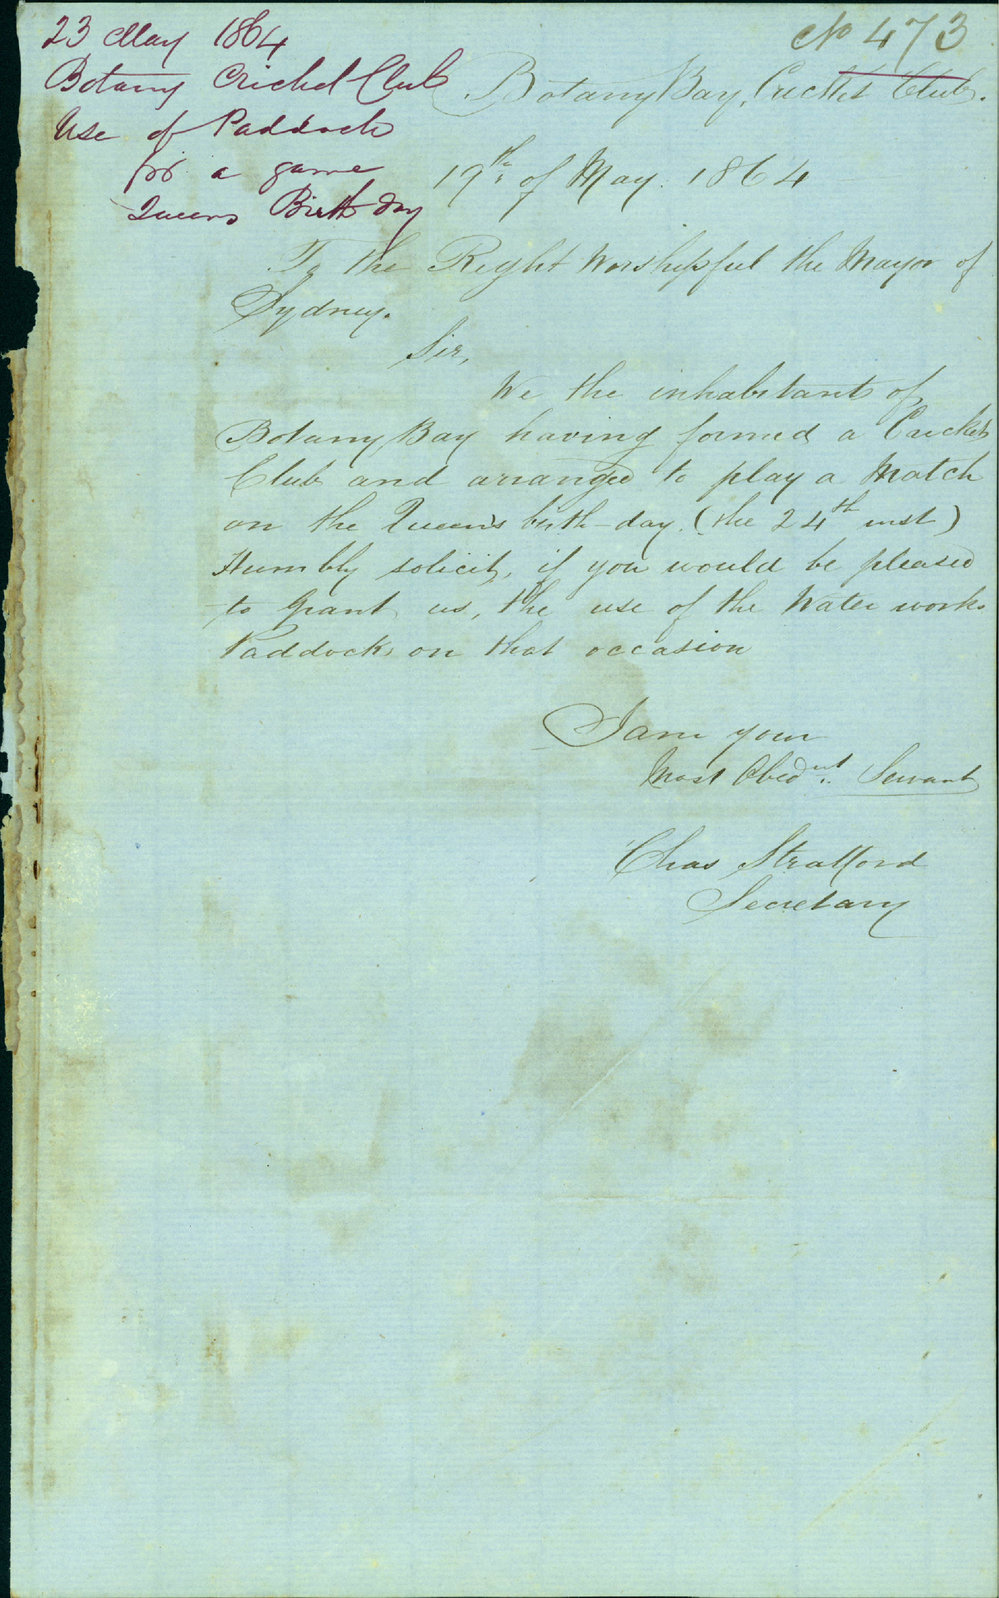 23 May 1864
Botany Cricket Club
Use of Paddock
for a game
Queens Birth day
No 473
Botany Bay, Cricket Club.
17th of May. 1864
To the Right Worshipful the Mayor of
Sydney.
Sir,
We the inhabitants of
Botany Bay having formed a Cricket
Club and arranged to play a Match
on the Queens birth-day. (the 24th inst)
Humbly solicit, if you would be pleased
to grant us, the use of the Water works
Paddock, on that occasion
I am your
Most Obednt. Servant
Chas Stratford
Secretary